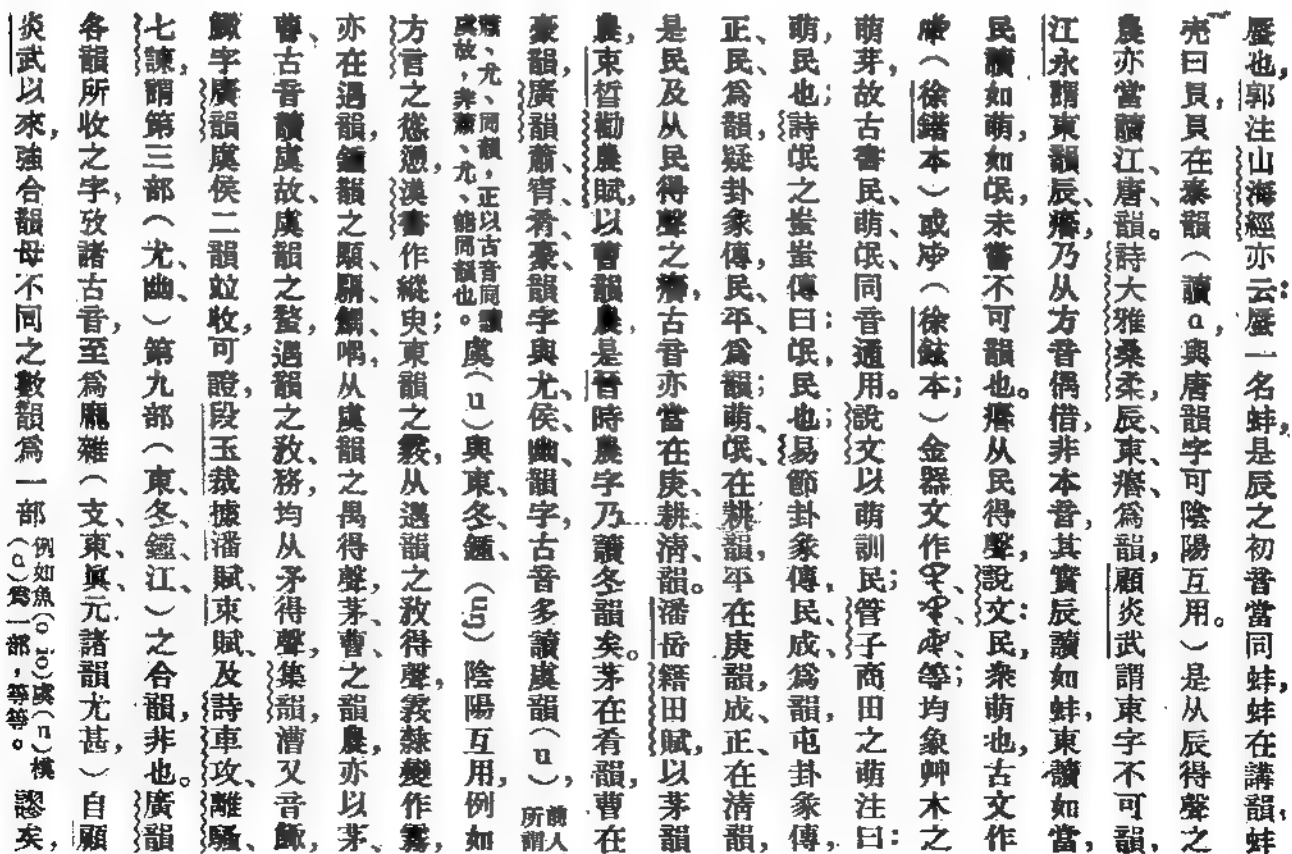 蜃也,郭注山海經亦云:蜃一名蚌,是辰之初音當同蚌,蚌在講韻,蚌
亮曰貝,貝在泰韻(讀a,與唐韻字可陰陽互用。)是从辰得聲之
農亦當讀江、唐韻。詩大雅桑柔,辰、東、瘽爲韻,顧炎武謂東字不可韻,
江永謂東韻辰、瘽,乃从方音偶借,非本音,其實辰讀如蚌,東讀如當,
民讀如萌,如氓,未嘗不可韻也。瘽从民得聲,說文:民,衆萌也,古文作
(徐鍇本)或(徐鉉本);金器文作等;均象艸木之
萌芽,故古書民、萌、氓、同音通用。說文以萌訓民;管子商田之萌注曰:
萌,民也;詩氓之蚩蚩傳曰:氓,民也;易節卦彖傳,民、成爲韻,屯卦彖傳,
正、民、爲韻,疑卦彖傳,民、平、爲韻;萌、氓、在耕韻,平在庚韻,成、正、在清韻,
是民及从民得聲之瘽,古音亦當在庚、耕、清、韻。潘岳籍田賦,以茅韻
農,束晳勸農賦以曹韻農,是晉時農字乃讀冬韻矣。茅在肴韻,曹在
豪韻,廣韻蕭、宵、肴、豪、韻字與尤、侯、幽、韻字,古音多讀虞韻(u),前人所謂
蕭、尤、同韻,正以古音同讀虞故,非蕭、尤、能同韻也。虞(u)與東、冬、鍾、(uŋ)陰陽互用,例如
方言之慫慂,漢書作縱臾;東韻之霿,从遇韻之敄得聲,霿隸變作霧,
亦在遇韻,鍾韻之顒、鰅、喁,从虞韻之禺得聲,茅、曹之韻農,亦以茅、
曹、古音讀虞故,虞韻之鍪,遇韻之敄、務,均从矛得聲,集韻,漕又音鯫,
鯫字廣韻虞侯二韻竝收,可證。段玉裁據潘賦、束賦、及詩車攻、離騷、
七諫,謂第三部(尤、幽、)第九部(東、冬、鍾、江、)之合韻,非也。廣韻
各韻所收之字,攷諸古音,至爲龐雜(支、東、眞、元諸韻尤甚,)自顧
炎武以來,強合韻母不同之數韻爲一部(例如魚(o io)虞(u)模(a)爲一部,等等。謬矣,